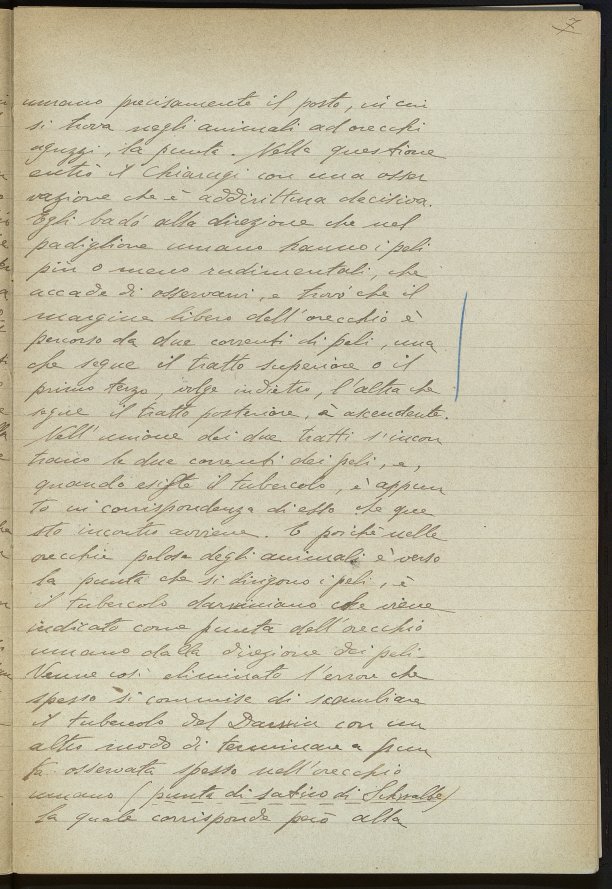 7
umano precisamente il posto, in cui
si trova negli animali ad orecchi
aguzzi, la punta. Nella questione
entrò il Chiarugi con una osser
vazione che è addirittura decisiva.
Egli badò alla direzione che nel
padiglione umano hanno i peli
più o meno rudimentali, che
accade di osservarvi, e trovò che il
margine libero dell'orecchio è
percorso da due correnti di peli, una
che segue il tratto superiore o il
primo terzo, volge indietro, l'altra che
segue il tratto posteriore, è ascendente.
Nell'unione dei due tratti s'incon
trano le due correnti dei peli, e,
quando esiste il tubercolo, è appun
to in corrispondenza di esso che que
sto incontro avviene. E poichè nelle
orecchie pelose degli animali è verso
la punta che si dirigono i peli, è
il tubercolo darwiniano che viene
indicato come punta dell'orecchio
umano dalla direzione dei peli.
Venne così eliminato l'errore che
spesso si commise di scambiare
il tubercolo del Darwin con un
altro modo di terminare a pun
ta osservata spesso nell'orecchio
umano (punta di satiro di Schwalbe)
la quale corrisponde però alla